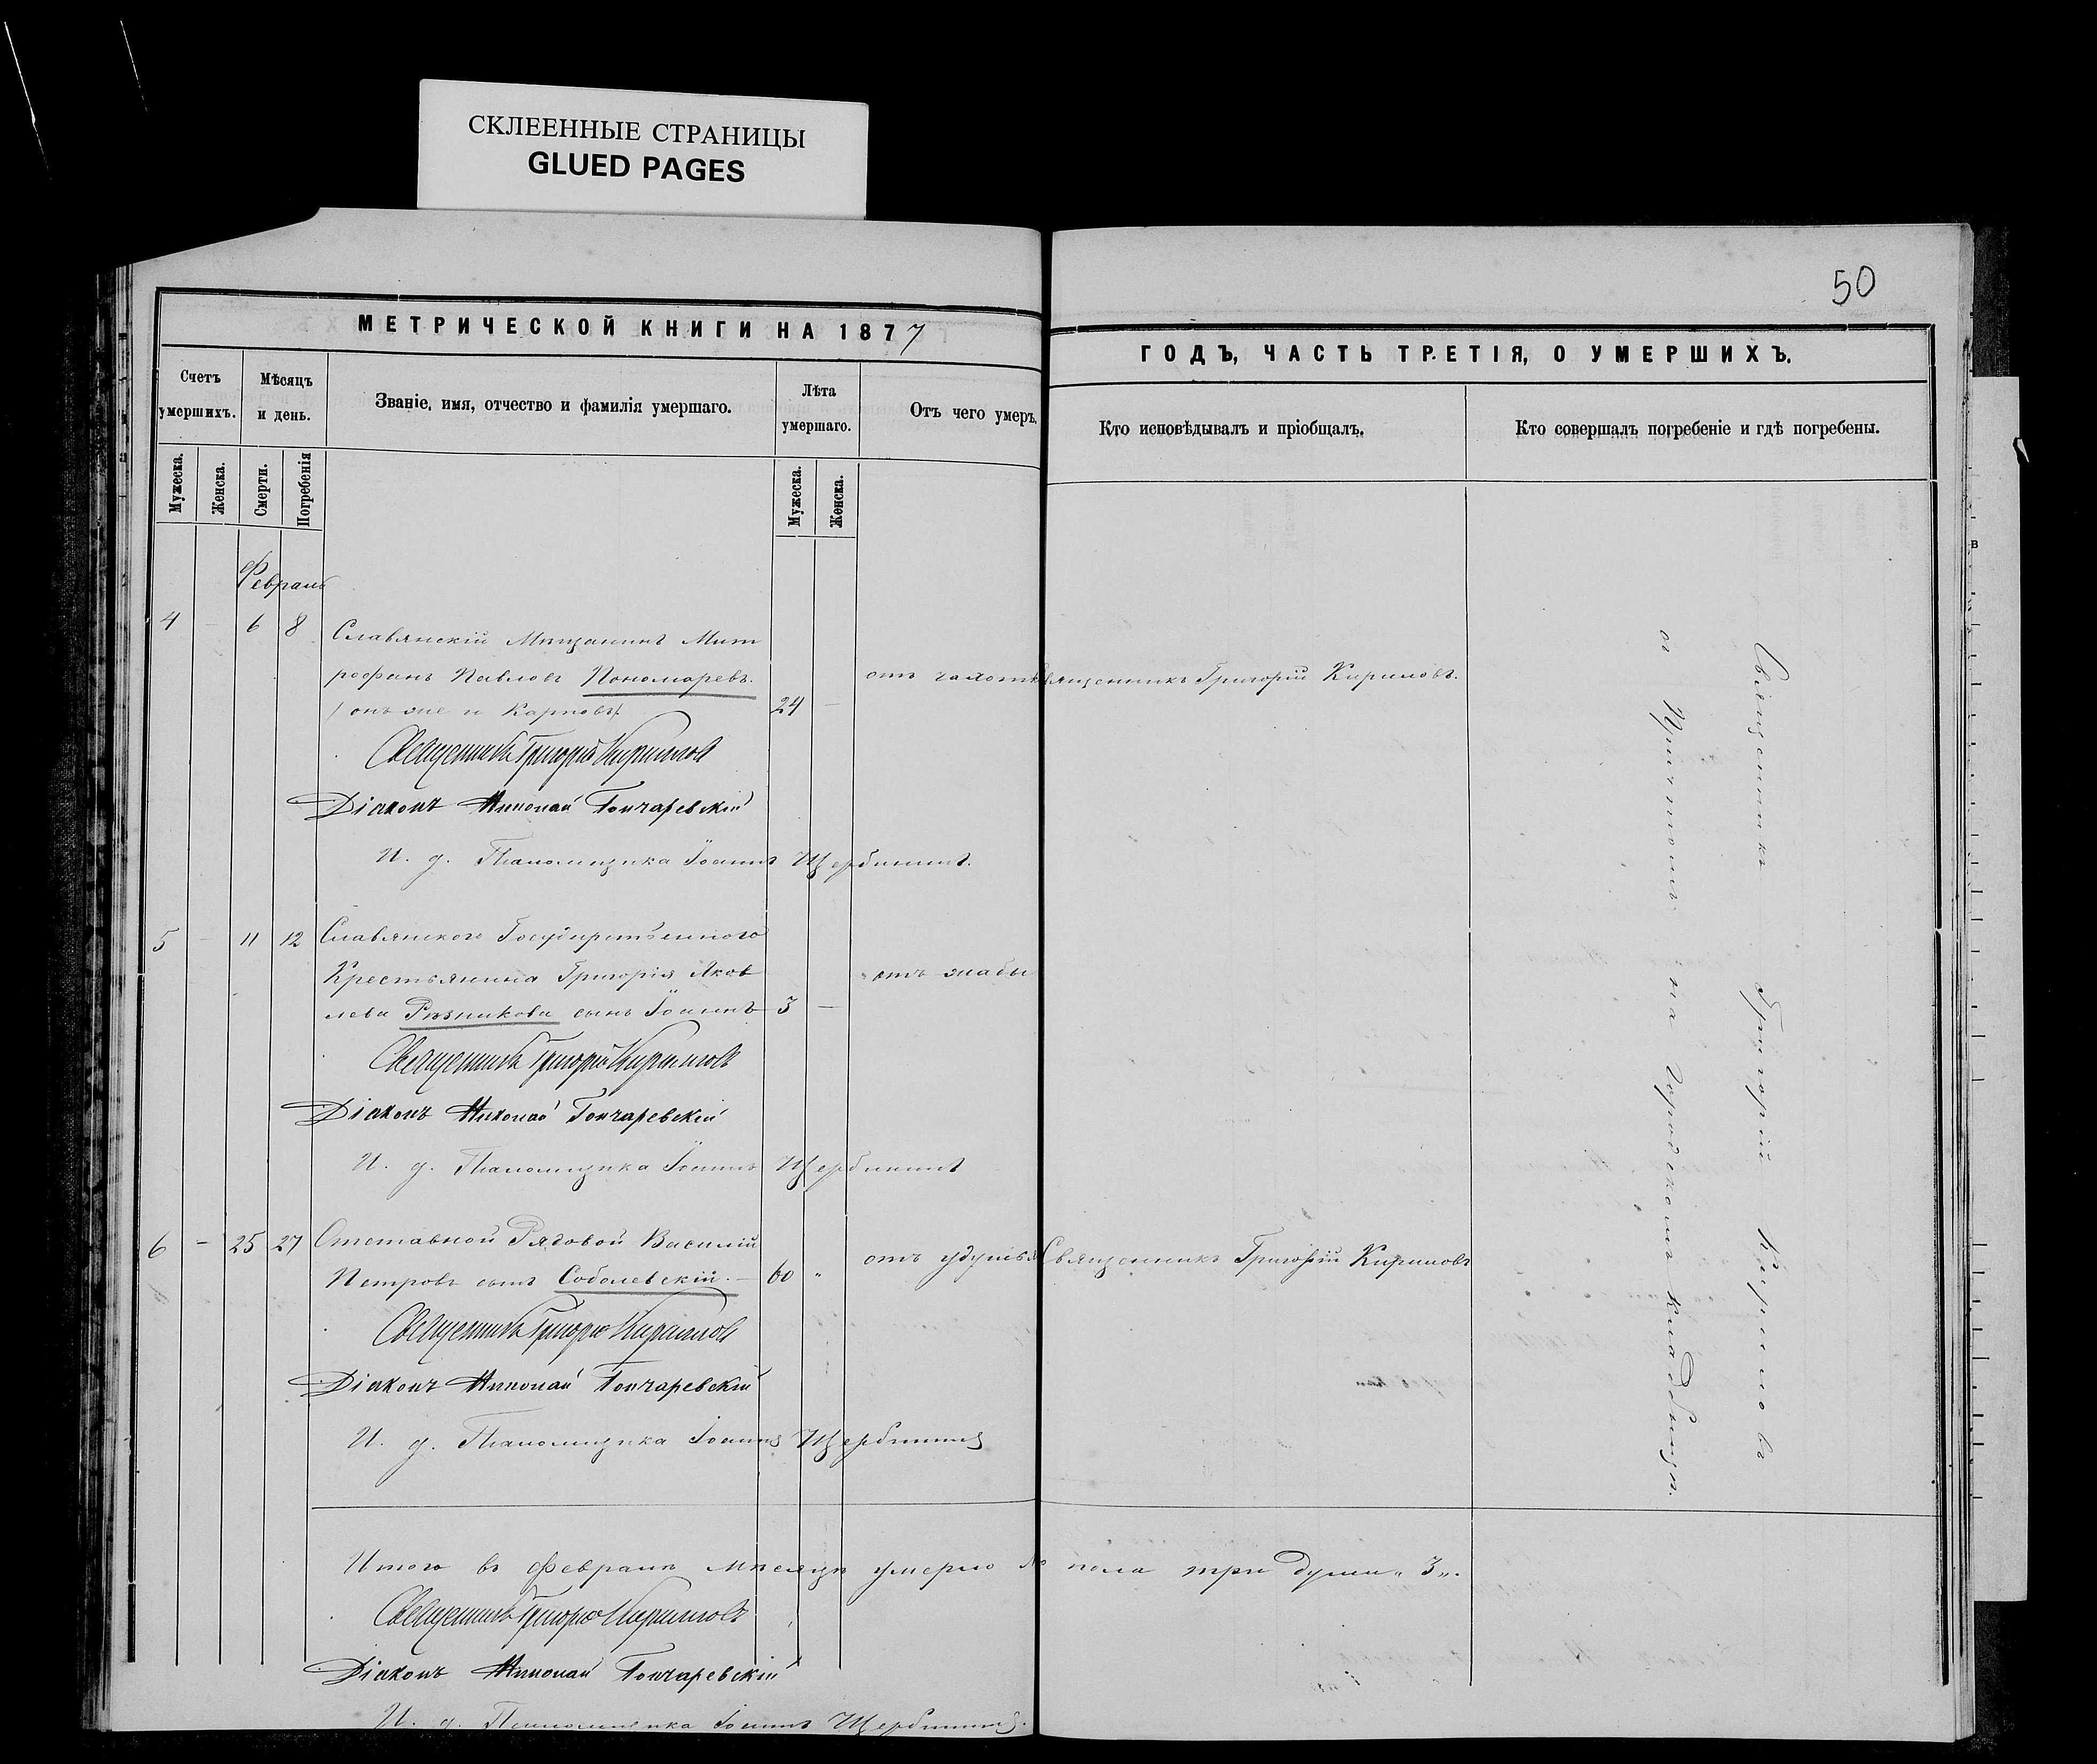 СКЛЕЕННЫЕ СТРАНИЦЫ
GLUED PAGES
50
МЕТРИЧЕСКОЙ КНИГИ НА 1877
ГОДЪ, ЧАСТЬ ТРЕТІЯ, О УМЕРШИХЪ.
Счетъ умершихъ.
Мѣсяцъ и день.
Званіе, имя, отчество и фамилія умершаго.
Лѣта умершаго.
Отъ чего умеръ.
Кто исповѣдывалъ и пріобщалъ.
Кто совершалъ погребеніе и гдѣ погребены.
Мужеска.
Женска.
Смерти.
Погребенія
Мужеска.
Женска.
Февраль
4 - 6 8 Славянскій Мѣщанинъ Мит
рофанъ Павловъ Пономаревъ.
/онъ же и Карповъ/. 24 -
отъ чахотки
Священникъ Григорій Кириловъ.
Священникъ Григорій Кириловъ
Діаконъ Николай Гончаревскій
И. д. Псаломщика Іоаннъ Щербининъ.
5 - 11 12 Славянского Государственного
Крестьянина Григорія Яков
лева Рѣзникова сынъ Іоаннъ 3 -
отъ жабы
Священникъ Григорій Кириловъ
Діаконъ Николай Гончаревскій
И. д. Псаломщика Іоаннъ Щербининъ
6 - 25 27 Отставной Рядовой Василій
Петровъ сынъ Соболевскій. - 60 "
отъ удушья
Священникъ Григорій Кириловъ
Священникъ Григорій Кириловъ
Діаконъ Николай Гончаревскій
И. д. Псаломщика Іоаннъ Щербининъ
Священникъ Григорій Кириловъ
съ Причтомъ на городскомъ кладбищѣ.
Итого въ февралѣ мѣсяцѣ умерло м. пола три души "3".
Священникъ Григорій Кириловъ
Діаконъ Николай Гончаревскій
И. д. Псаломщика Іоаннъ Щербининъ.